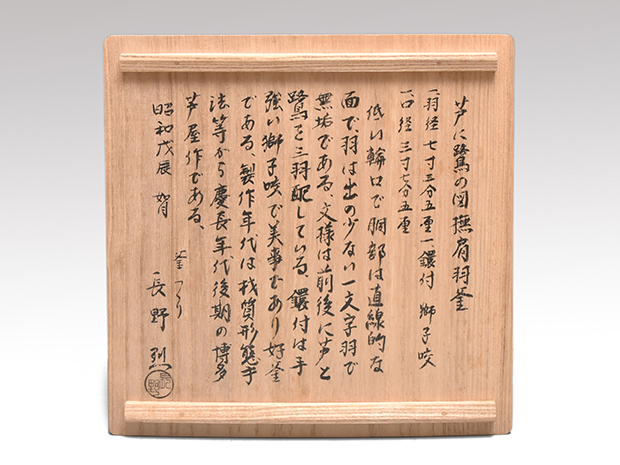 芦に鷺の図撫肩羽釜
一、羽径 七寸三分五厘 一、鐶付 獅子咬
一、口径 三寸七分五厘
低い輪口で胴部は直線的な
面で、羽は出の少ない一文字羽で
無垢である、文様は前後に芦と
鷺を三羽配している、鐶付は手
強い獅子咬で美事であり好釜
である、製作年代は材質形態手
法等から慶長年代後期の博多
芦屋作である、
昭和戊辰 賀
釜つくり
長野烈